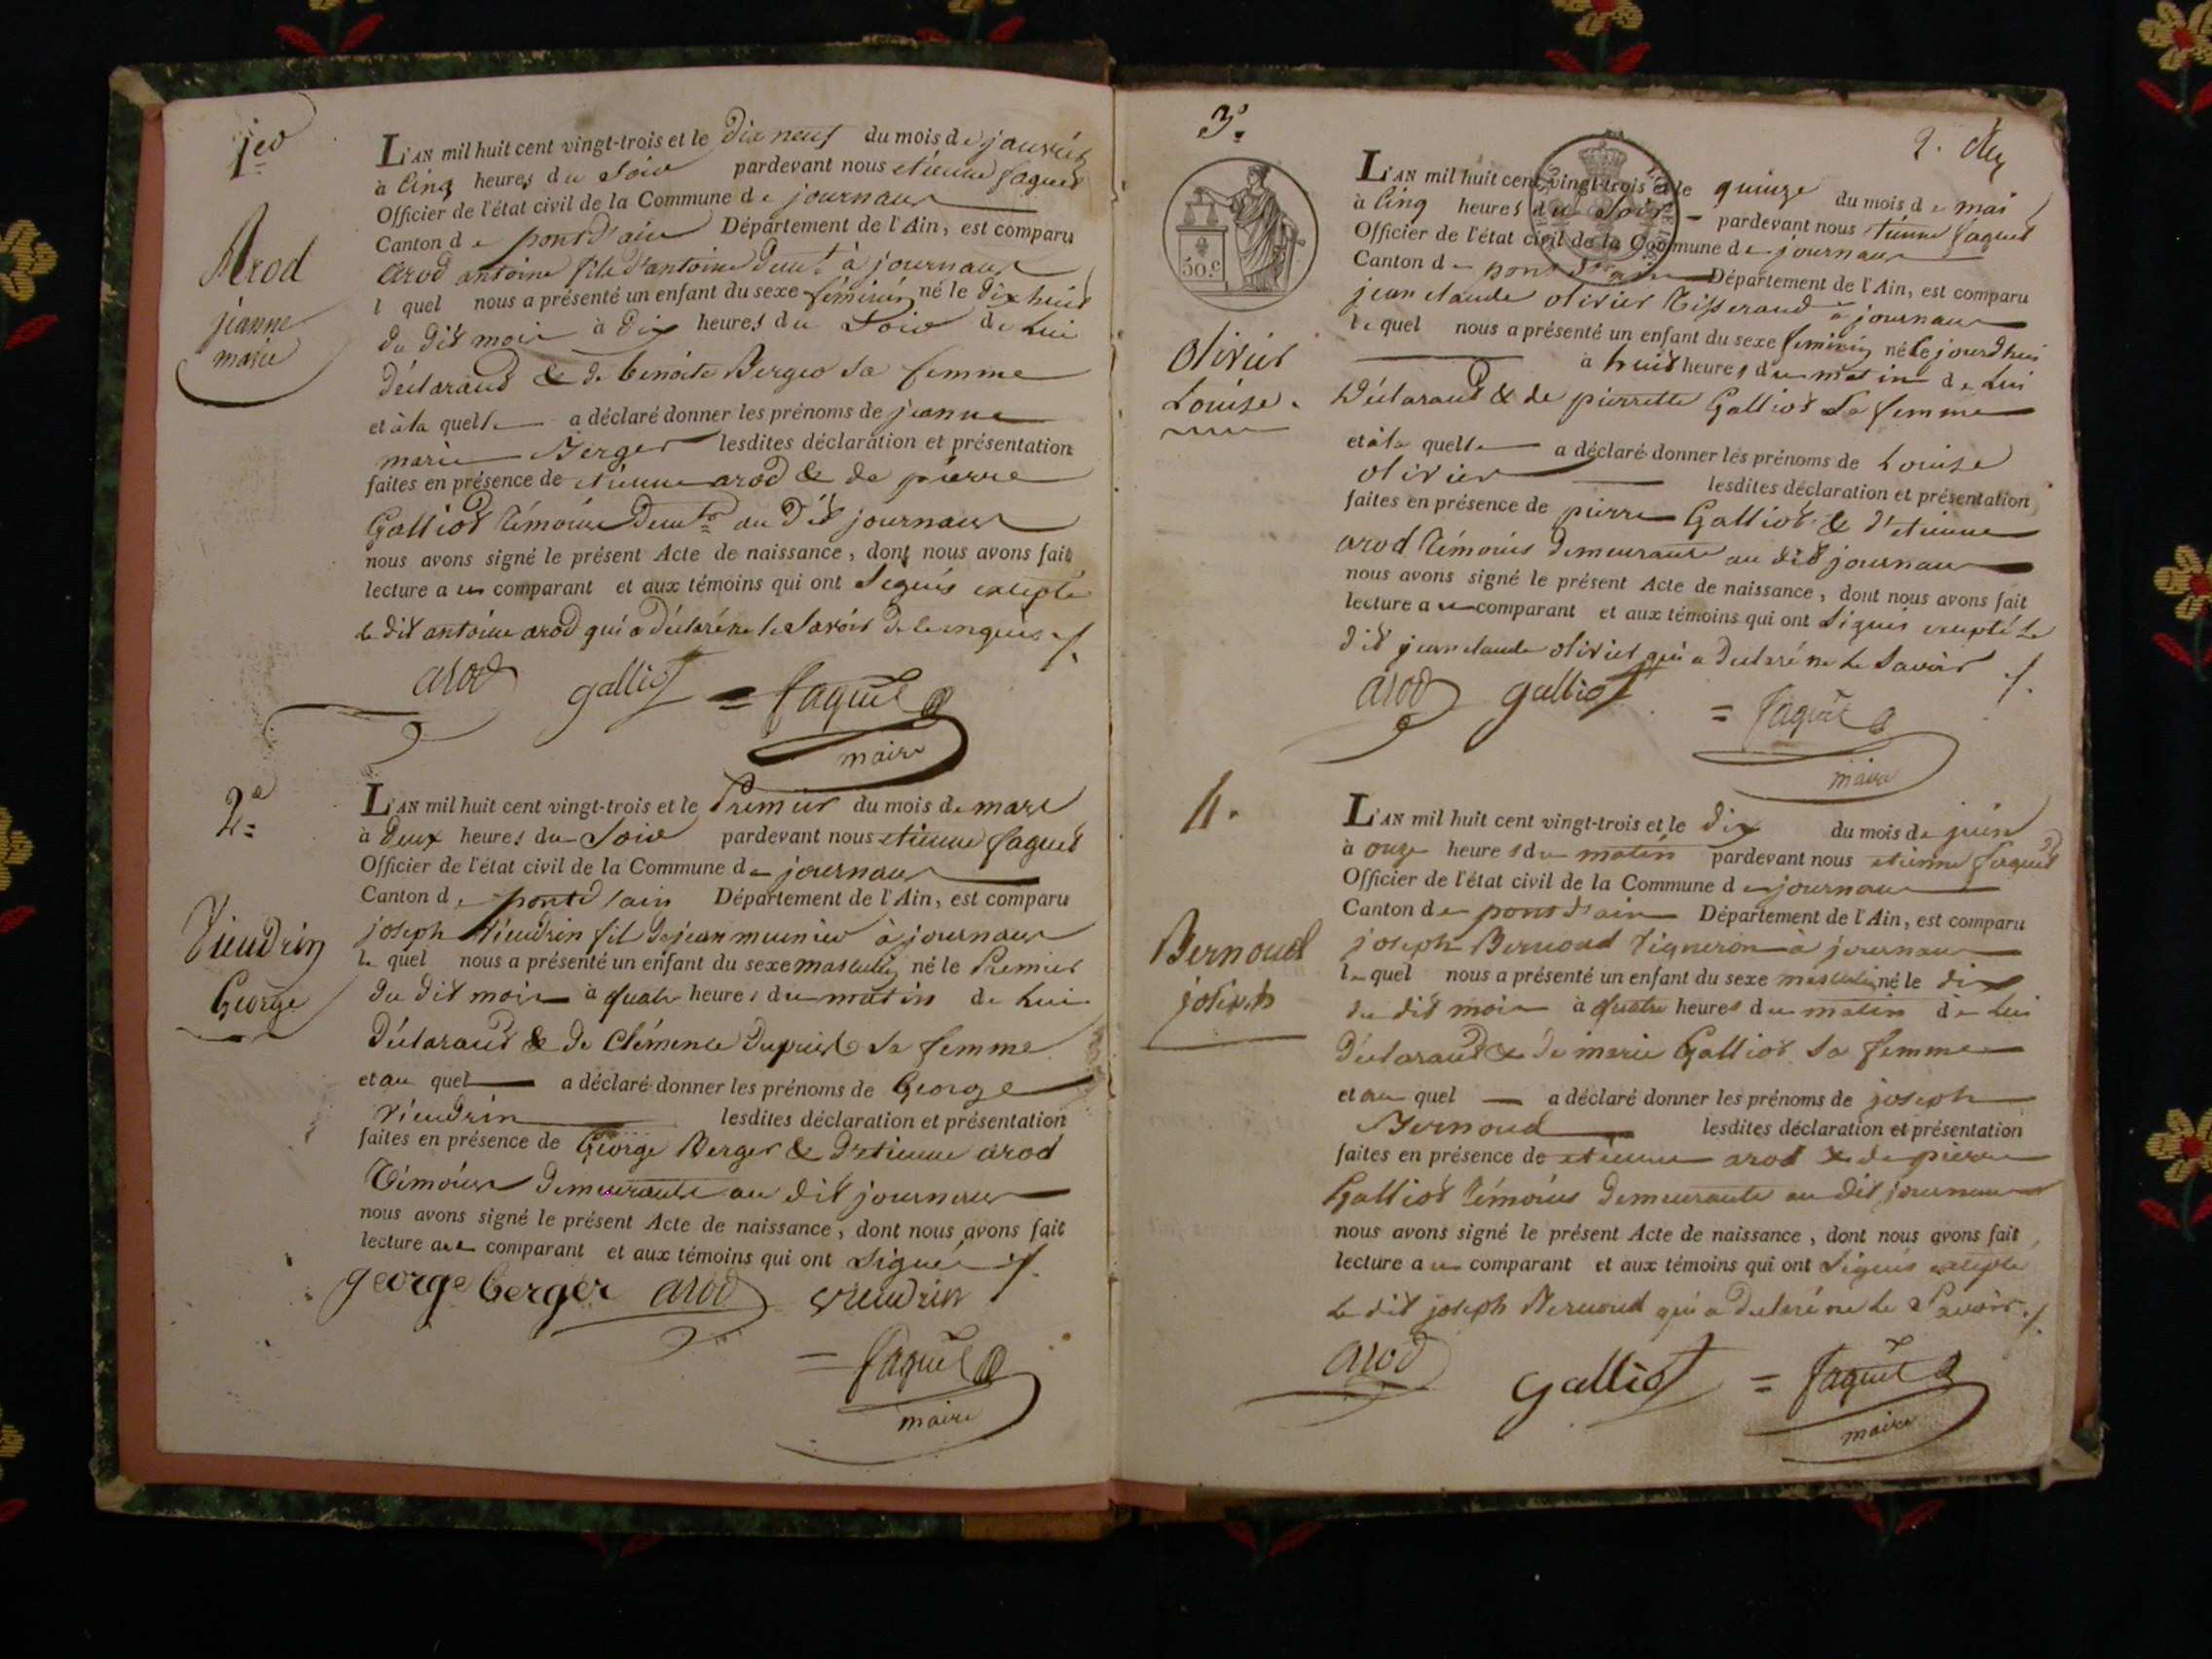 1er
Arod
jeanne
marie
L'AN mil huit cent vingt-trois et le dix neuf du mois de janvier
à cinq heures du soir pardevant nous etienne faguet
Officier de l'état civil de la Commune de journans
Canton de pont d'ain Département de l'Ain, est comparu
arod antoine fils d'antoine demt à journans
lequel nous a présenté un enfant du sexe féminin né le dix huit
du dit mois à dix heures du soir de lui
déclarant & de benoite Berger sa femme
et à la quelle a déclaré donner les prénoms de jeanne
marie Berger lesdites déclaration et présentation
faites en présence de etienne arod & de pierre
Galliot témoins demts au dit journans
nous avons signé le présent Acte de naissance, dont nous avons fait
lecture a ces comparant et aux témoins qui ont signés excepté
le dit antoine arod qui a déclaré ne le savoir de ce enquis
arod galliot = faguet
maire
2e
Vieudrin
George
L'AN mil huit cent vingt-trois et le Premier du mois de mars
à deux heures du soir pardevant nous etienne faguet
Officier de l'état civil de la Commune de journans
Canton de pont d'ain Département de l'Ain, est comparu
joseph vieudrin fils de jean meunier à journans
le quel nous a présenté un enfant du sexe masculin né le Premier
du dit mois à quatre heures du matin de lui
déclarant & de Clémence Dupuis sa femme
et au quel a déclaré donner les prénoms de George
vieudrin lesdites déclaration et présentation
faites en présence de George Berger & d'etienne arod
témoins demeurants au dit journans
nous avons signé le présent Acte de naissance, dont nous avons fait
lecture a ce comparant et aux témoins qui ont signé
george berger arod vieudrin
= faguet
maire
3e
2.
50.c
olivier
Louise.
L'AN mil huit cent vingt-trois et le quinze du mois de mai
à cinq heures du soir pardevant nous etienne faguet
Officier de l'état civil de la Commune de journans
Canton de pont d'ain Département de l'Ain, est comparu
jean claude olivier tisserand à journans
le quel nous a présenté un enfant du sexe féminin né le jourd'hui
à huit heures du matin de lui
déclarant & de pierrette Galliot sa femme
et à la quelle a déclaré donner les prénoms de Louise
olivier lesdites déclaration et présentation
faites en présence de pierre Galliot & d'etienne
arod témoins demeurants au dit journans
nous avons signé le présent Acte de naissance, dont nous avons fait
lecture a ce comparant et aux témoins qui ont signés excepté le
dit jean claude olivier qui a declaré ne le savoir
arod galliot = faguet
maire
4.
Bernoud
joseph
L'AN mil huit cent vingt-trois et le dix du mois de juin
à onze heures du matin pardevant nous etienne faguet
Officier de l'état civil de la Commune de journans
Canton de pont d'ain Département de l'Ain, est comparu
joseph Bernoud vigneron à journans
le quel nous a présenté un enfant du sexe masculin né le dix
du dit mois à quatre heures du matin de lui
déclarant & de marie Galliot sa femme
et au quel a déclaré donner les prénoms de joseph
Bernoud lesdites déclaration et présentation
faites en présence de etienne arod & de pierre
Galliot témoins demeurants au dit journans
nous avons signé le présent Acte de naissance, dont nous avons fait
lecture a ce comparant et aux témoins qui ont signés excepté
le dit joseph Bernoud qui a declaré ne le savoir
arod galliot = faguet
maire